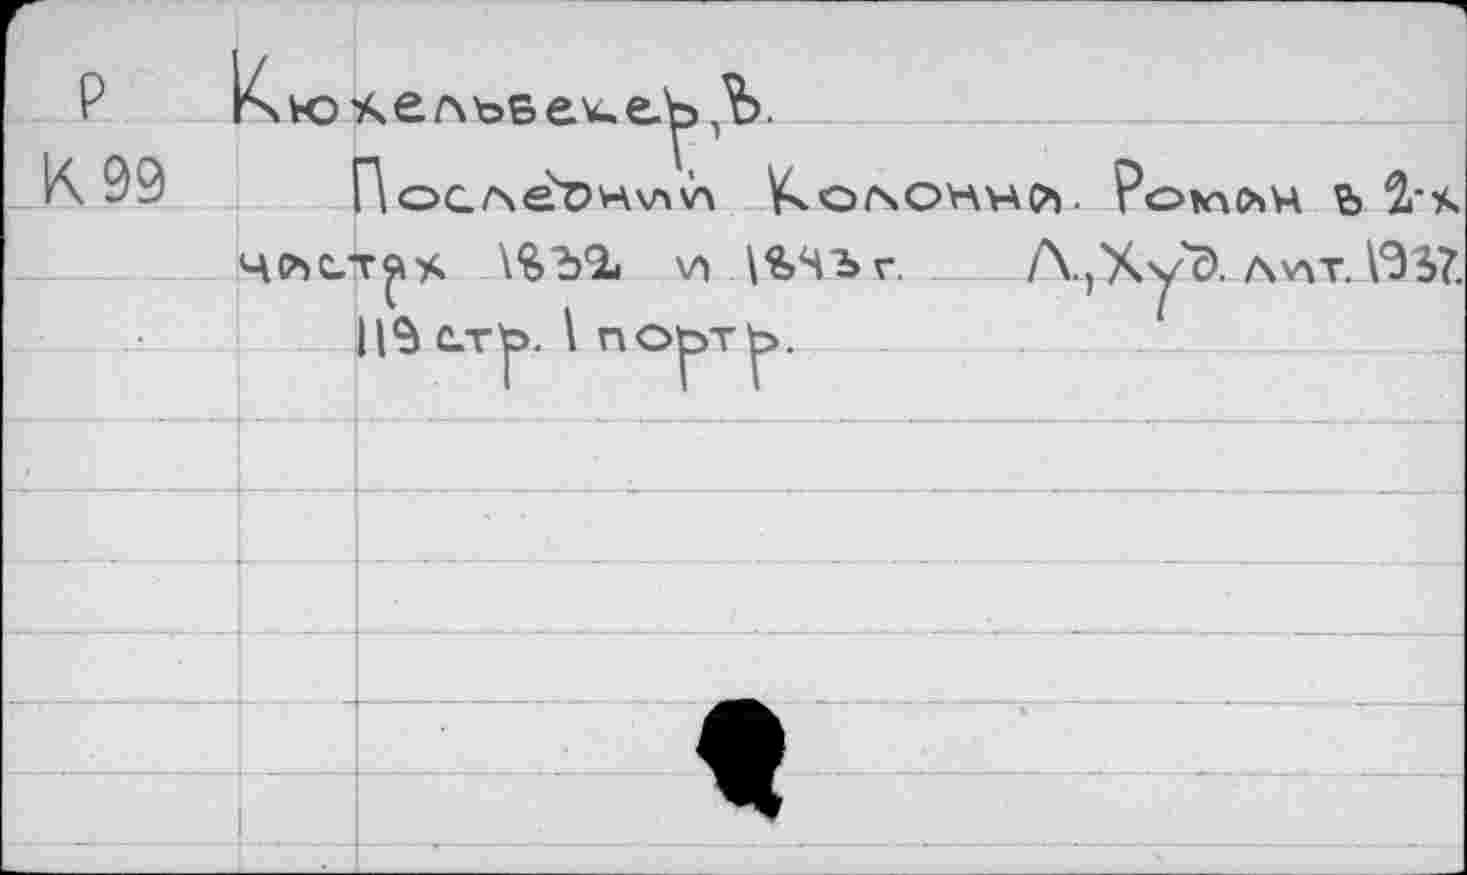 Р Кюхельбекер, В.
К 99 Последний Колонна. Роман в 2-х
частях 1832 и 1843 г. Л., Худ. лит. 1937.
119 стр. 1 портр.